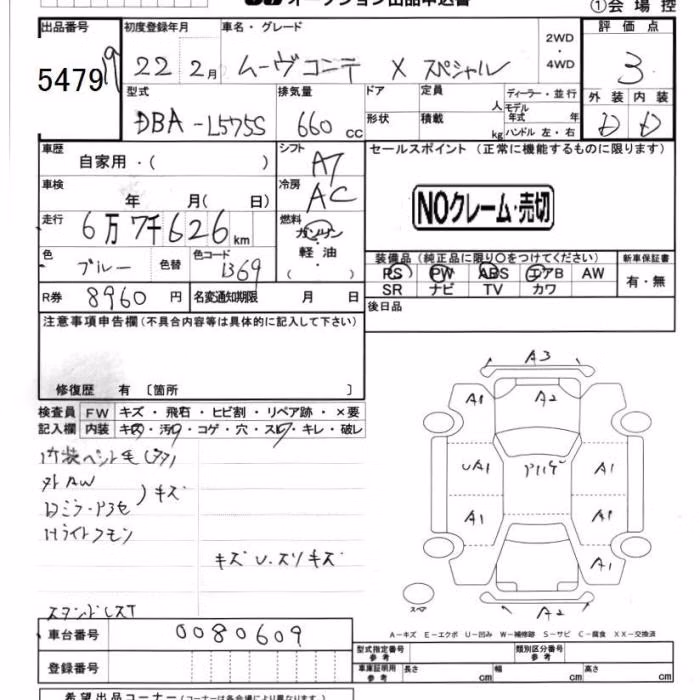 オークション出品申込書
①会場控
出品番号 初度登録年月 車名・グレード 2WD・4WD 評価点
5479 22 2月 ムーヴコンテ X スペシャル 3
型式 排気量 ドア 定員 人 ディーラー・並行 外装 内装
DBA-L575S 660 cc 形状 積載 kg モデル年式 年 ハンドル 左・右 D D
車歴 自家用・( ) シフト AT セールスポイント (正常に機能するものに限ります)
車検 年 月( 日) 冷房 AC
NOクレーム・売切
走行 6万7千626km 燃料 ガソリン・軽油 ( )
色 ブルー 色替 色コード B69
装備品 (純正品に限り〇をつけてください) 新車保証書
PS PW ABS エアB AW 有・無
SR ナビ TV カワ
R券 8960円 名変通知期限 月 日 後日品
注意事項申告欄 (不具合内容等は具体的に記入して下さい)
修復歴 有 〔箇所 〕
検査員 FW キズ・飛石・ヒビ割・リペア跡・×要
記入欄 内装 キズ・汚れ・コゲ・穴・スレ・キレ・破レ
A3
A1 A2
UA1 A1
A1 A1
A1
A2
外AW
キズ
Hライトクモン
キズ U.スリキズ
スペア
A-キズ E-エクボ U-凹み W-補修跡 S-サビ C-腐食 XX-交換済
車台番号 0080609
型式指定番号 参考 類別区分番号 参考
車庫証明用 参考 長さ cm 幅 cm 高さ cm
登録番号
希望出品コーナー (コーナーは各会場により異なります)